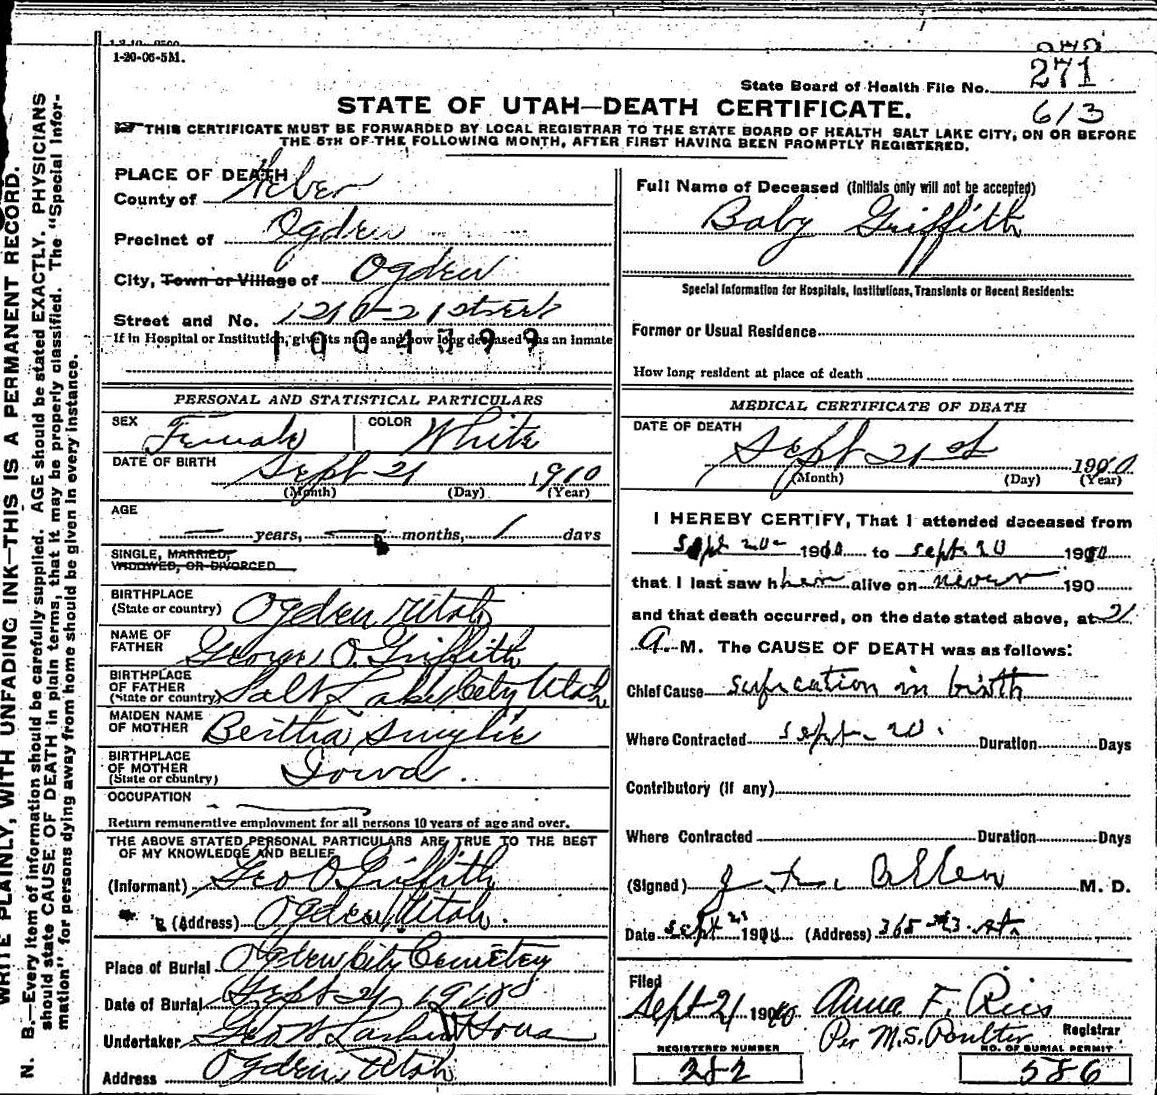 1-20-06-5M.
State Board of Health File No. 271
613
STATE OF UTAH—DEATH CERTIFICATE.
THIS CERTIFICATE MUST BE FORWARDED BY LOCAL REGISTRAR TO THE STATE BOARD OF HEALTH SALT LAKE CITY, ON OR BEFORE
THE 5TH OF THE FOLLOWING MONTH, AFTER FIRST HAVING BEEN PROMPTLY REGISTERED.
WRITE PLAINLY, WITH UNFADING INK—THIS IS A PERMANENT RECORD.
N. B.—Every item of information should be carefully supplied. AGE should be stated EXACTLY. PHYSICIANS
should state CAUSE OF DEATH in plain terms, that it may be properly classified. The "Special Infor-
mation" for persons dying away from home should be given in every instance.
PLACE OF DEATH
County of Weber
Precinct of Ogden
City, Town or Village of Ogden
Street and No. 1210-21 Street
If in Hospital or Institution, give its name and how long deceased was an inmate
PERSONAL AND STATISTICAL PARTICULARS
SEX Female COLOR White
DATE OF BIRTH Sept 21 1910
(Month) (Day) (Year)
AGE
— years, — months, 1 days
SINGLE, MARRIED,
WIDOWED, OR DIVORCED
BIRTHPLACE
(State or country) Ogden Utah
NAME OF
FATHER George O. Griffith
BIRTHPLACE
OF FATHER
(State or country) Salt Lake City Utah
MAIDEN NAME
OF MOTHER Bertha Smylie
BIRTHPLACE
OF MOTHER
(State or country) Iowa.
OCCUPATION
Return remunerative employment for all persons 10 years of age and over.
THE ABOVE STATED PERSONAL PARTICULARS ARE TRUE TO THE BEST
OF MY KNOWLEDGE AND BELIEF
(Informant) Geo O. Griffith
(Address) Ogden Utah.
Place of Burial Ogden City Cemetery
Date of Burial Sept 21 1910
Undertaker Geo W. Larkin & Sons
Address Ogden, Utah
Full Name of Deceased (Initials only will not be accepted)
Baby Griffith
Special Information for Hospitals, Institutions, Transients or Recent Residents:
Former or Usual Residence
How long resident at place of death
MEDICAL CERTIFICATE OF DEATH
DATE OF DEATH
Sept 21st 1910
(Month) (Day) (Year)
I HEREBY CERTIFY, That I attended deceased from
Sept 20 1910 to sept 20 1910
that I last saw h her alive on never 190
and that death occurred, on the date stated above, at 21
A. M. The CAUSE OF DEATH was as follows:
Chief Cause sufication in birth
Where Contracted sept 20. Duration Days
Contributory (if any)
Where Contracted Duration Days
(Signed) Allen M. D.
Date sept 21 1910 (Address) 365-23. st.
Filed
Sept 21 1910 Anna F. Ries
Per M.S. Poulter Registrar
REGISTERED NUMBER NO. OF BURIAL PERMIT
282 586